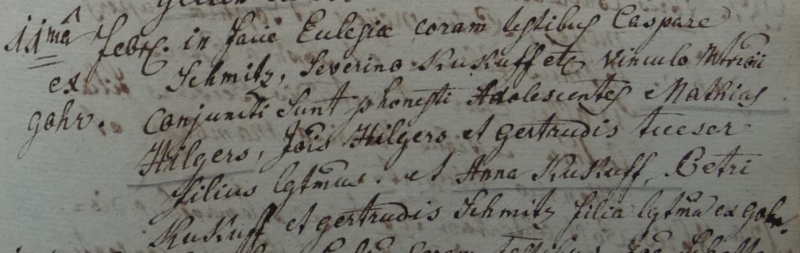 11ma febr. in facie Eulesiæ coram testibus Caspare
ex Schmitz, Severino KuKuff etc vinculo Mtrii
gohr. Conjuncti Sunt honesti Adolescentes Mathias
Hilgers, Jois Hilgers et gertrudis tueser
filius lgtmus. et Anna KuKuff, Petri
KuKuff et gertrudis Schmitz filia lgtma ex gohr.
coram testibus